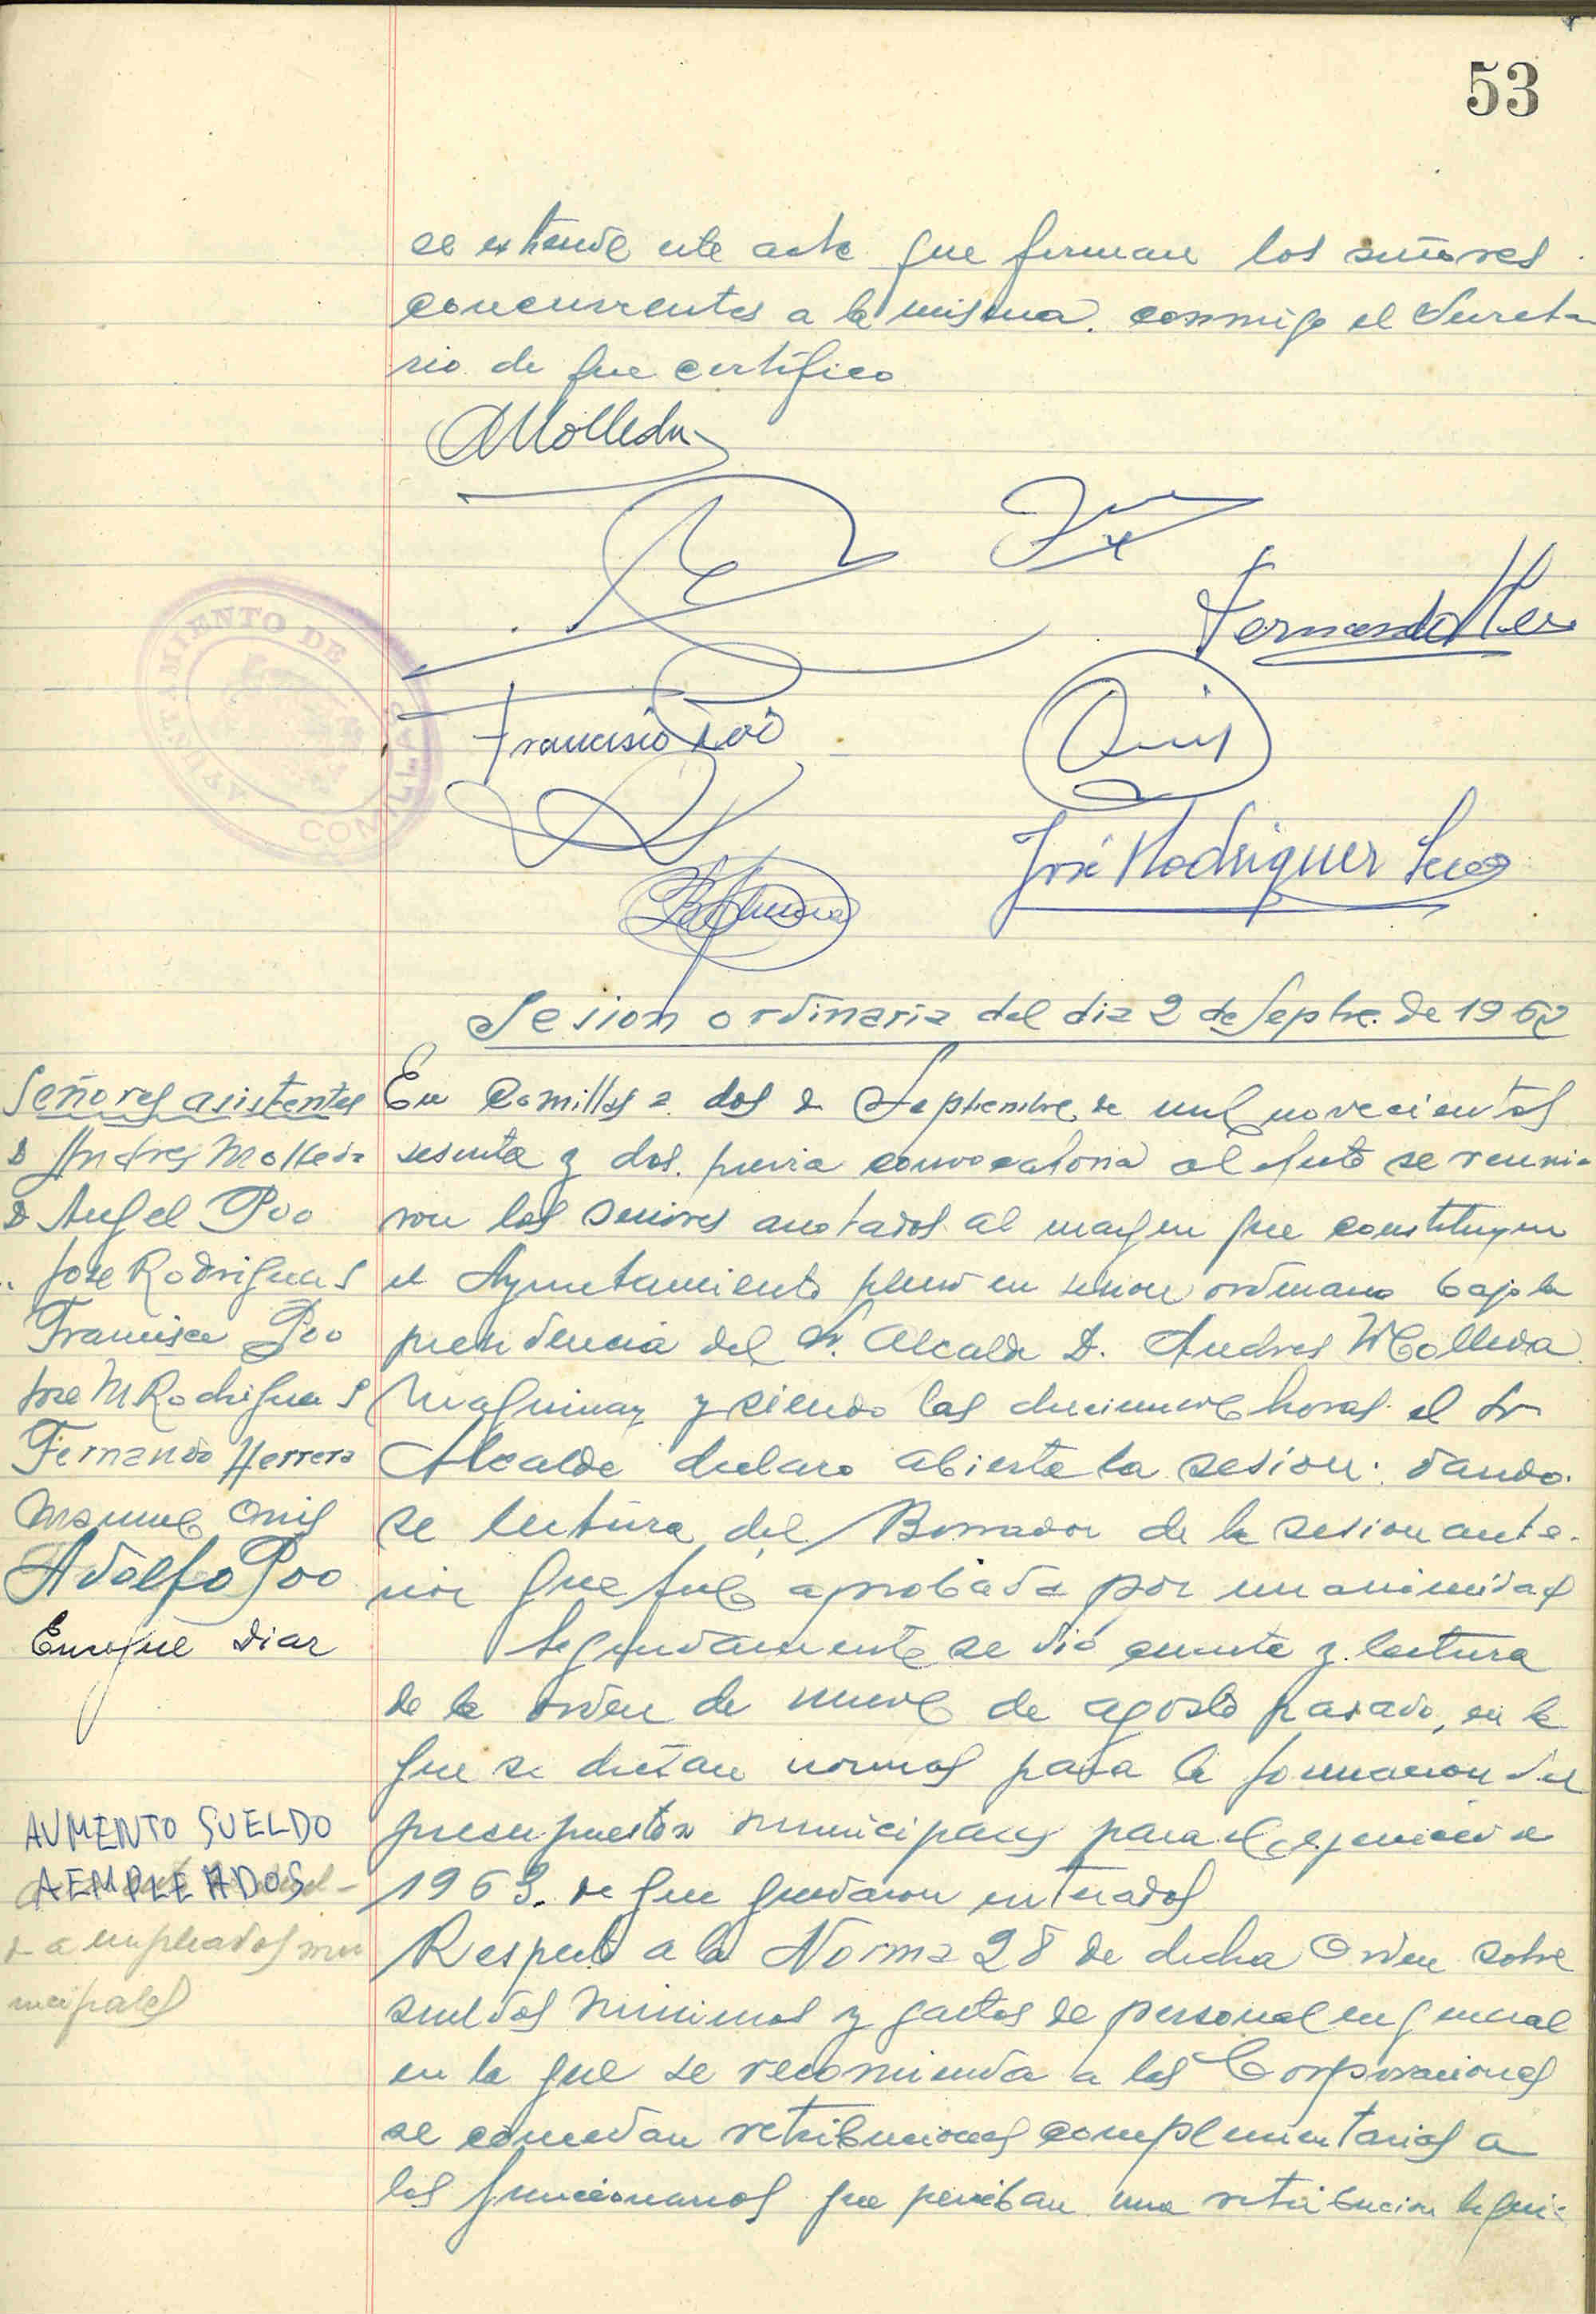 53
se extiende este acta que firman los señores
concurrentes a la misma. conmigo el Secreta
rio de que certifico
AMolleda
Fernando Her
Francisco Poo
Onis
José Rodriguez
AYUNTAMIENTO DE COMILLAS
Sesion ordinaria del dia 2 de Septbre. de 1962
Señores asistentes
D Andres Molleda
D Angel Poo
" Jose Rodrigues
Francisco Poo
Jose M Rodrigues
Fernando Herrera
Manuel Onis
Adolfo Poo
Enrique Diaz
En Comillas a dos de Septiembre de mil novecientos
sesenta y dos. previa convocatoria al efecto se reunie
ron los señores anotados al margen que constituyen
el Ayuntamiento pleno en sesion ordinaria bajo la
presidencia del Sr. Alcalde D. Andres Molleda
y siendo las diecinueve horas el Sr
Alcalde declaro abierta la sesion. dando
se lectura del Borrador de la sesion ante.
rior que fue aprobada por unanimidad
Segundamente se dió cuenta y lectura
de la orden de nueve de agosto pasado, en la
que se dictan normas para la formacion del
presupuestos municipales para el ejercicio de
1963. de que quedaron enterados
AUMENTO SUELDO
A EMPLEADOS
a empleados mu
nicipales
Respecto a la Norma 28 de dicha Orden sobre
sueldos minimos y gastos de personal en general
en la que se recomienda a las Corporaciones
se concedan retribuciones complementarias a
los funcionarios que perciban una retribucion